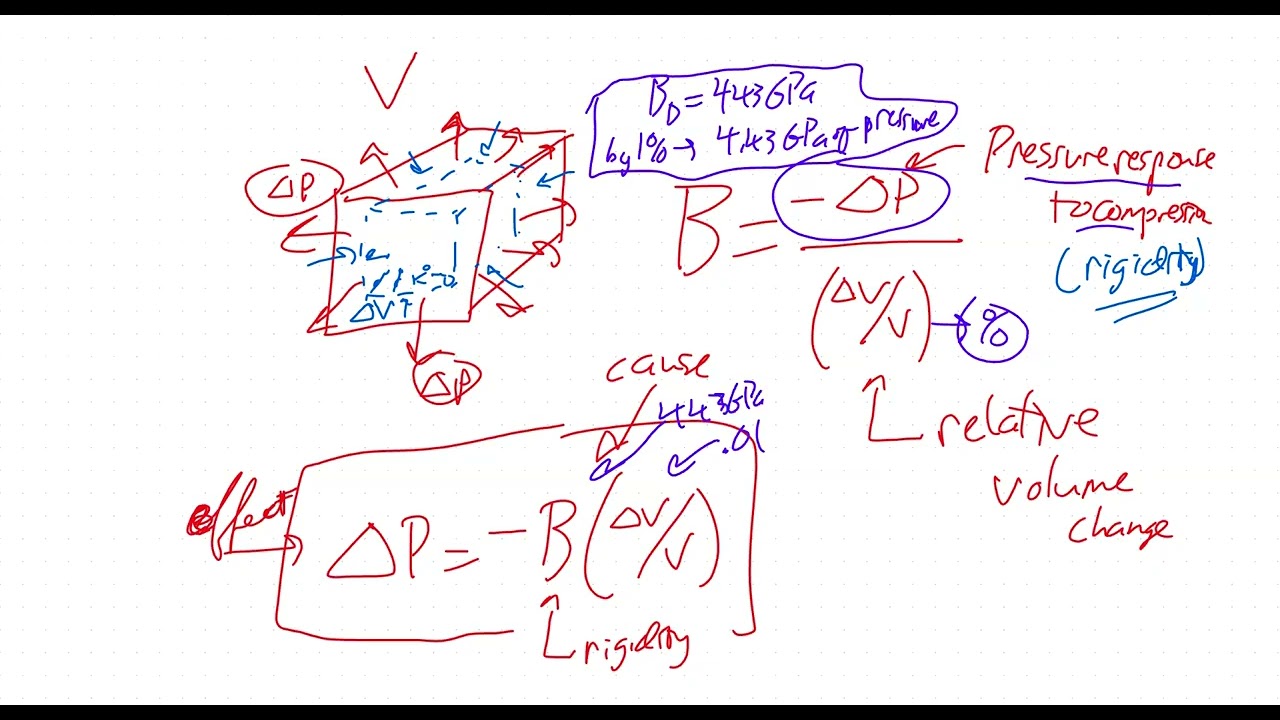 V
B_D = 443GPa
by 1% → 4.43GPa of pressure
ΔP
Pressure response
to compression
(rigidity)
B = -ΔP
(ΔV/V) → %
ΔV
ΔP
relative
volume
change
cause
443GPa
.01
effect
ΔP = -B(ΔV/V)
rigidity